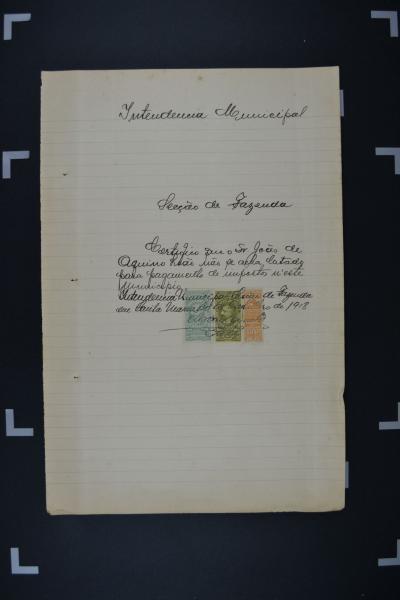 Intendencia Municipal
Secção de Fazenda
Certifico que o Sr João de
Aquino não se acha lotado
para pagamento de impostos n'este
Municipio
Intendencia Municipal Secção de Fazenda
em Santa Maria de 1918